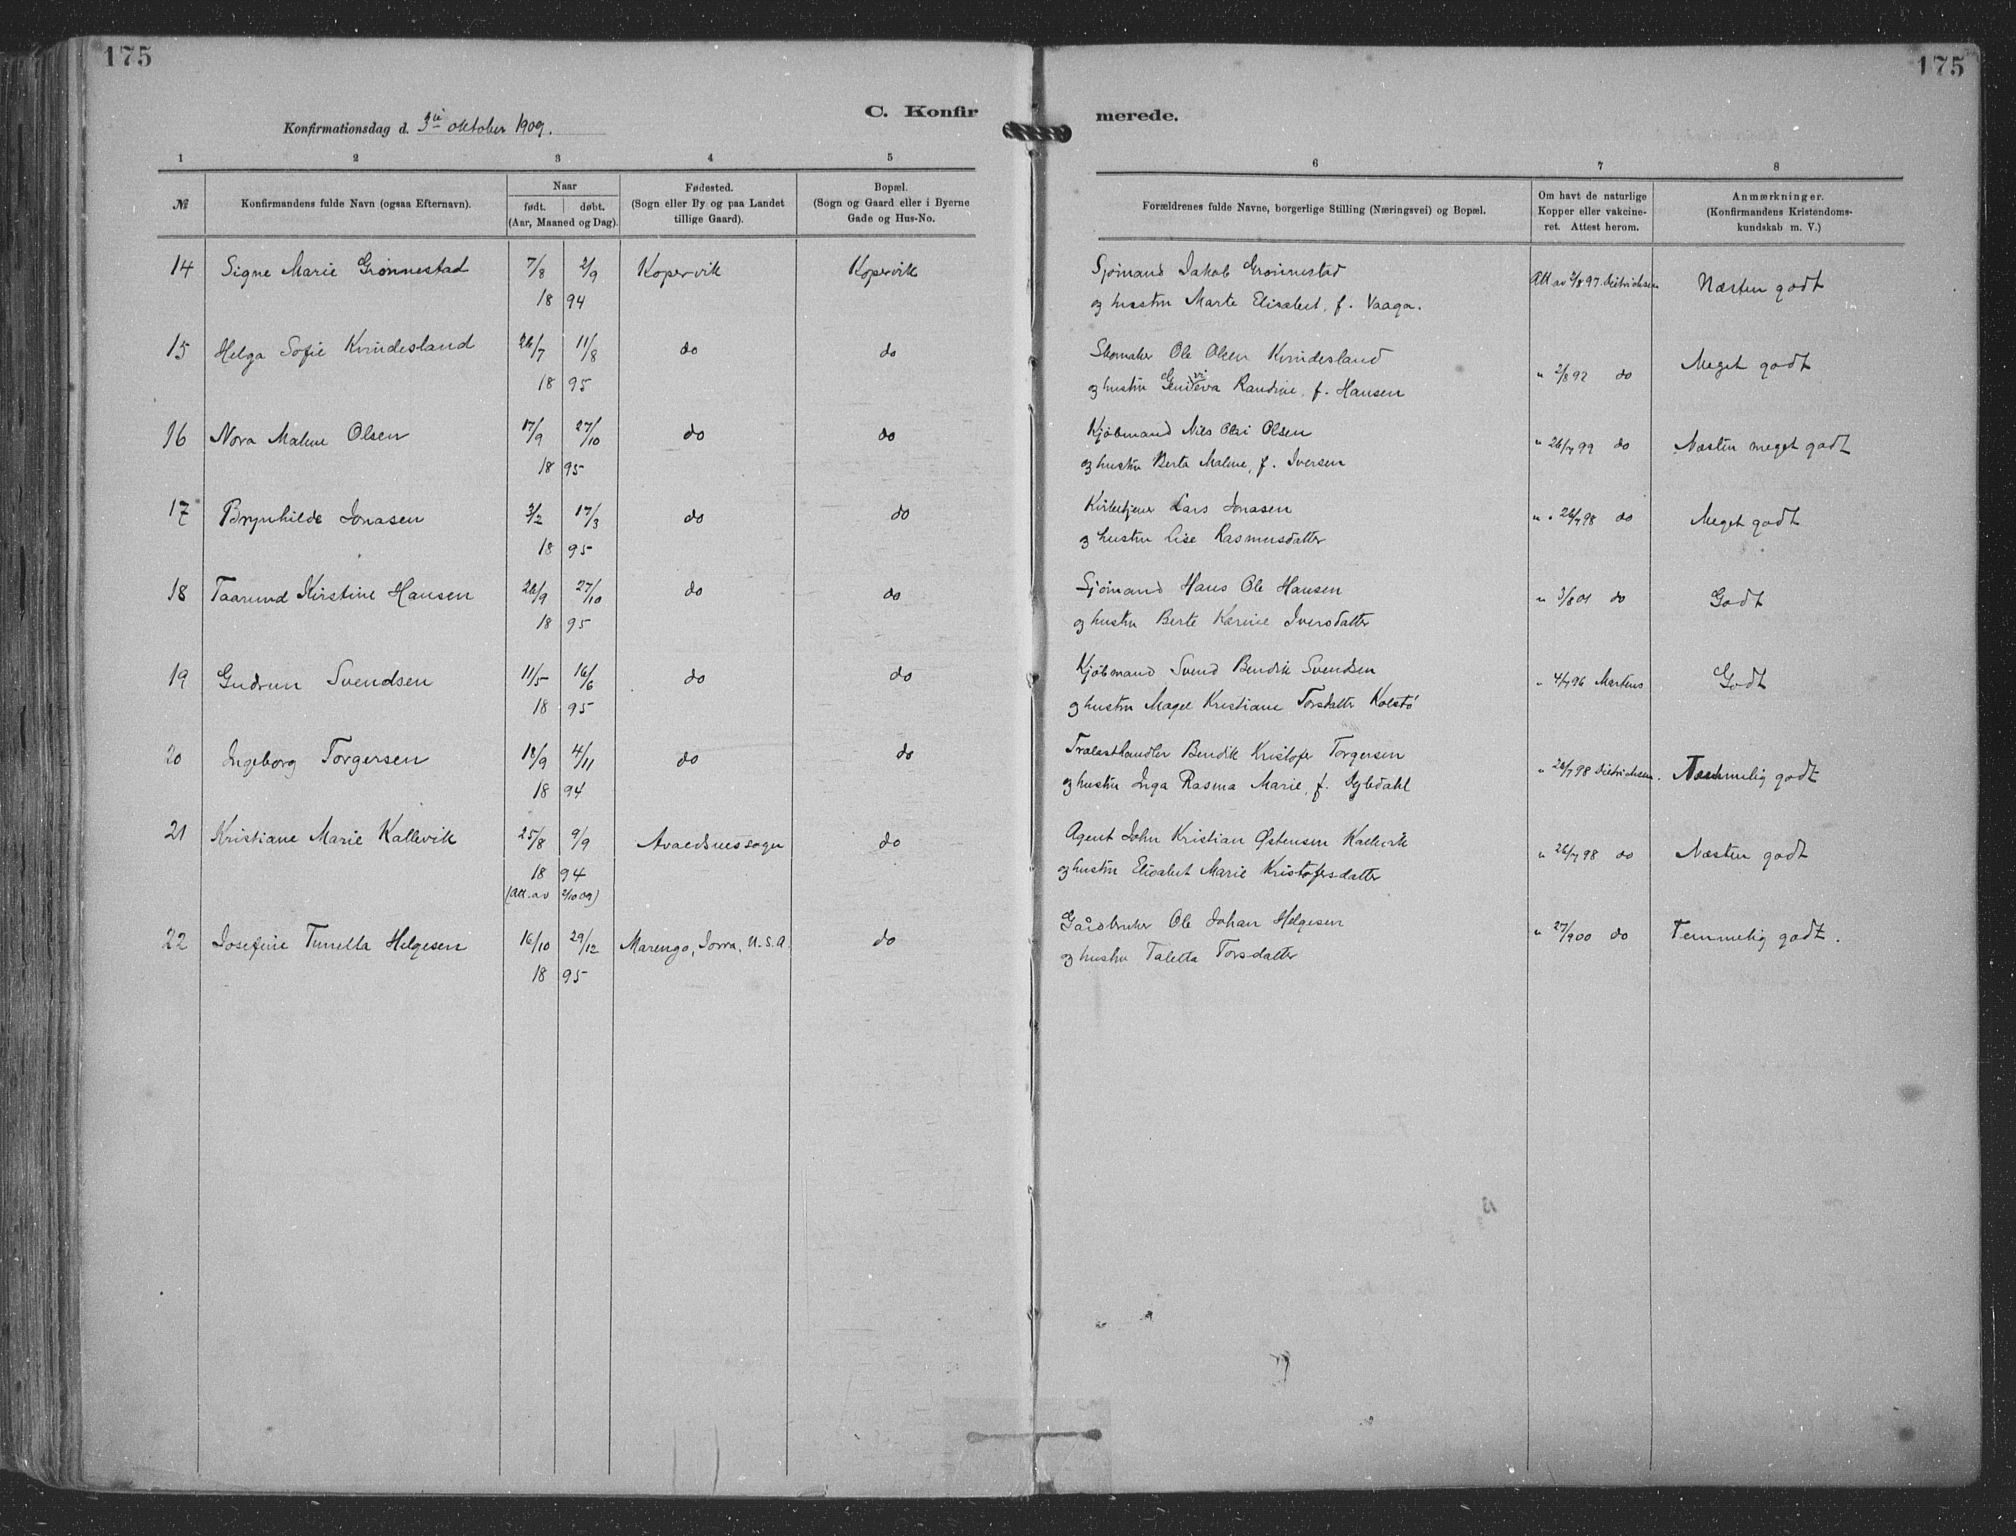 175
175
C. Konfirmerede.
Konfirmationsdag d. 3die oktober 1909.
1 2 3 4 5 6 7 8
№ Konfirmandens fulde Navn (ogsaa Efternavn). Naar født. døbt. (Aar, Maaned og Dag). Fødested. (Sogn eller By og paa Landet tillige Gaard). Bopæl. (Sogn og Gaard eller i Byerne Gade og Hus-No. Forældrenes fulde Navne, borgerlige Stilling (Næringsvei) og Bopæl. Om havt de naturlige Kopper eller vakcineret. Attest herom. Anmærkninger. (Konfirmandens Kristendomskundskab m. V.)
14 Signe Marie Grønnestad 7/8 2/9 Kopervik Kopervik Sjømand Jakob Grønnestad Att av 2/8 97 Dietrichsen Næsten godt
18 94 og hustru Marte Elisabet, f. Vaaga.
15 Helga Sofie Kvindesland 26/7 11/8 do do Skomaker Ole Olsen Kvindesland " 2/8 92 do Meget godt
18 95 og hustru Genoveva Randine, f. Hansen
16 Nora Maline Olsen 17/9 27/10 do do Kjøbmand Nils Olai Olsen " 26/7 99 do Næsten meget godt
18 95 og hustru Berta Maline, f. Iversen
17 Brynhilde Jonasen 3/2 17/3 do do Kirketjener Lars Jonasen " 26/7 98 do Meget godt
18 95 og hustru Lise Rasmusdatter
18 Taarund Kirstine Hansen 26/9 27/10 do do Sjømand Hans Ole Hansen " 3/8 01 do Godt
18 95 og hustru Berte Karine Iversdatter
19 Gudrun Svendsen 11/5 16/6 do do Kjøbmand Svend Bendik Svendsen " 4/7 96 Martens Godt
18 95 og hustru Magel Kristiane Torsdatter Kolstø
20 Ingeborg Torgersen 18/9 4/11 do do Trælasthandler Bendik Kristofer Torgersen " 26/7 98 Dietrichsen. Temmelig godt
18 94 og hustru Inga Rasma Marie, f. Dybdahl
21 Kristiane Marie Kallevik 25/8 9/9 Avaldsnes sogn do Agent John Kristian Østensen Kallevik " 26/7 98 do Næsten godt
18 94 og hustru Elisabet Marie Kristofersdatter
(Att. av 2/10 09)
22 Josefine Tunetta Helgesen 16/10 29/12 Marengo, Iowa, U.S.A. do Gårdbruker Ole Johan Helgesen " 27/9 00 do Temmelig godt.
18 95 og hustru Taletta Torsdatter